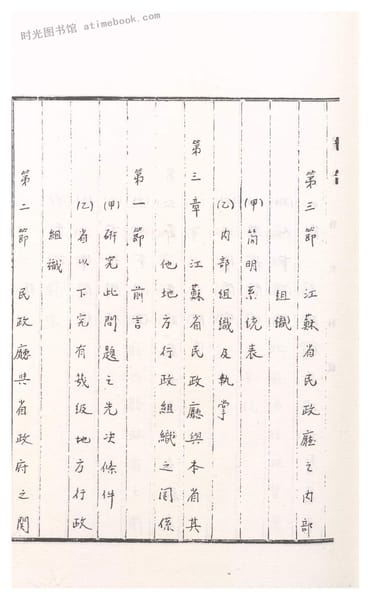 时光图书馆 atimebook.com
第三節 江蘇省民政廳之內部
組織
(甲)簡明系統表
(乙)內部組織及執掌
第三章 江蘇省民政廳與本省其
他地方行政組織之関係
第一節 前言
(甲)研究此問題之先决條件
(乙)省以下究有幾級地方行政
組織
第二節 民政廳與省政府之関